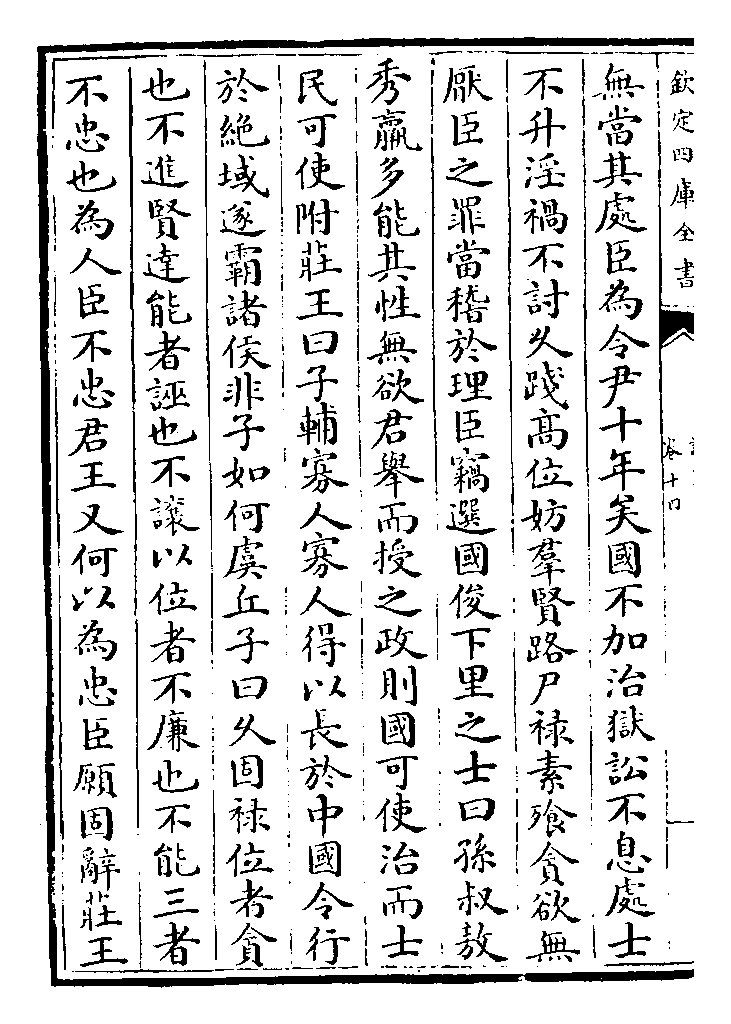 欽定四庫全書
卷十四
無當其處臣為令尹十年矣國不加治獄訟不息處士
不升淫禍不討久踐高位妨羣賢路尸禄素飱貪欲無
厭臣之罪當稽於理臣竊選國俊下里之士曰孫叔敖
秀羸多能其性無欲君舉而授之政則國可使治而士
民可使附莊王曰子輔寡人寡人得以長於中國令行
於絶域遂霸諸侯非子如何虞丘子曰久固禄位者貪
也不進賢達能者誣也不讓以位者不廉也不能三者
不忠也為人臣不忠君王又何以為忠臣願固辭莊王